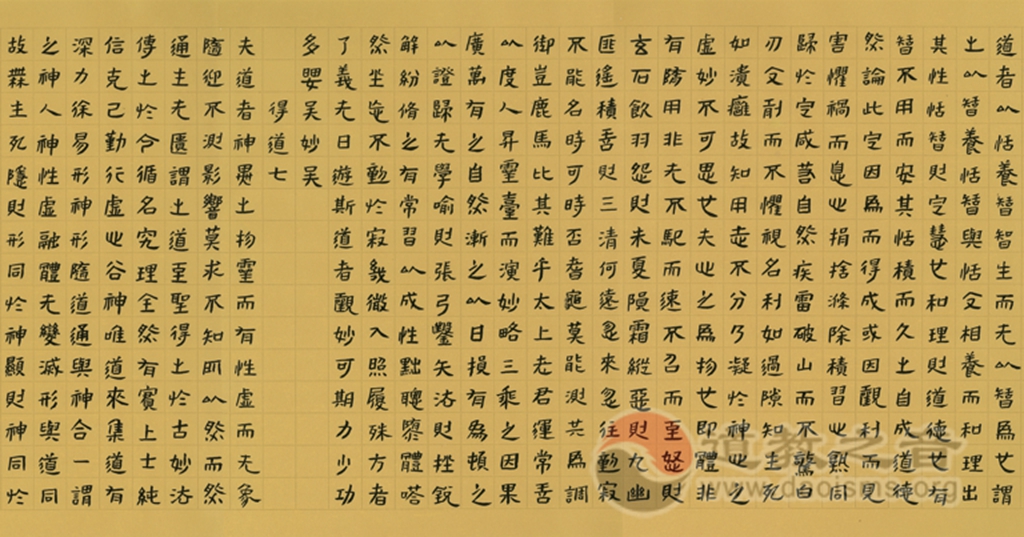 道者以恬養智智生而无以智為也謂
之以智養恬智與恬交相養而和理出
其性恬智則定慧也和理則道德也有
智不用而安其恬積而久之自成道德
然論此定因為而得成或因觀利而見
害懼禍而息心捐捨滌除積習心熟同
歸於定咸若自然疾雷破山而不驚白
刃交前而不懼視名利如過隙知生死
如潰癰故知用志不分乃凝於神心之
虛妙不可思也夫心之為物也即體非
有隨用非无不馭而速不召而至怒則
玄石飲羽怨則朱夏隕霜縱惡則九幽
匪遙積善則三清何遠忽來忽往動寂
不能名時可時否蓍龜莫能測其為調
御豈鹿馬比其難乎太上老君運常善
以度人昇靈臺而演妙略三乘之因果
廣萬有之自然漸之以日損有為頓之
以證歸无學喻則張弓鑿矢法則挫銳
解紛脩之有常習以成性黜聰隳體嗒
然坐忘不動於寂幾微入照履殊方者
了義无日遊斯道者觀妙可期力少功
多要矣妙矣
得道七
夫道者神異之物靈而有性虛而无象
隨迎不測影響莫求不知所以然而然
通生无匱謂之道至聖得之於古妙法
傳之於今循名究理全然有實上士純
信克己勤行虛心谷神唯道來集道有
深力徐易形神形隨道通與神合一謂
之神人神性虛融體无變滅形與道同
故無生死隱則形同於神顯則神同於
道教之音
www.daoisms.org